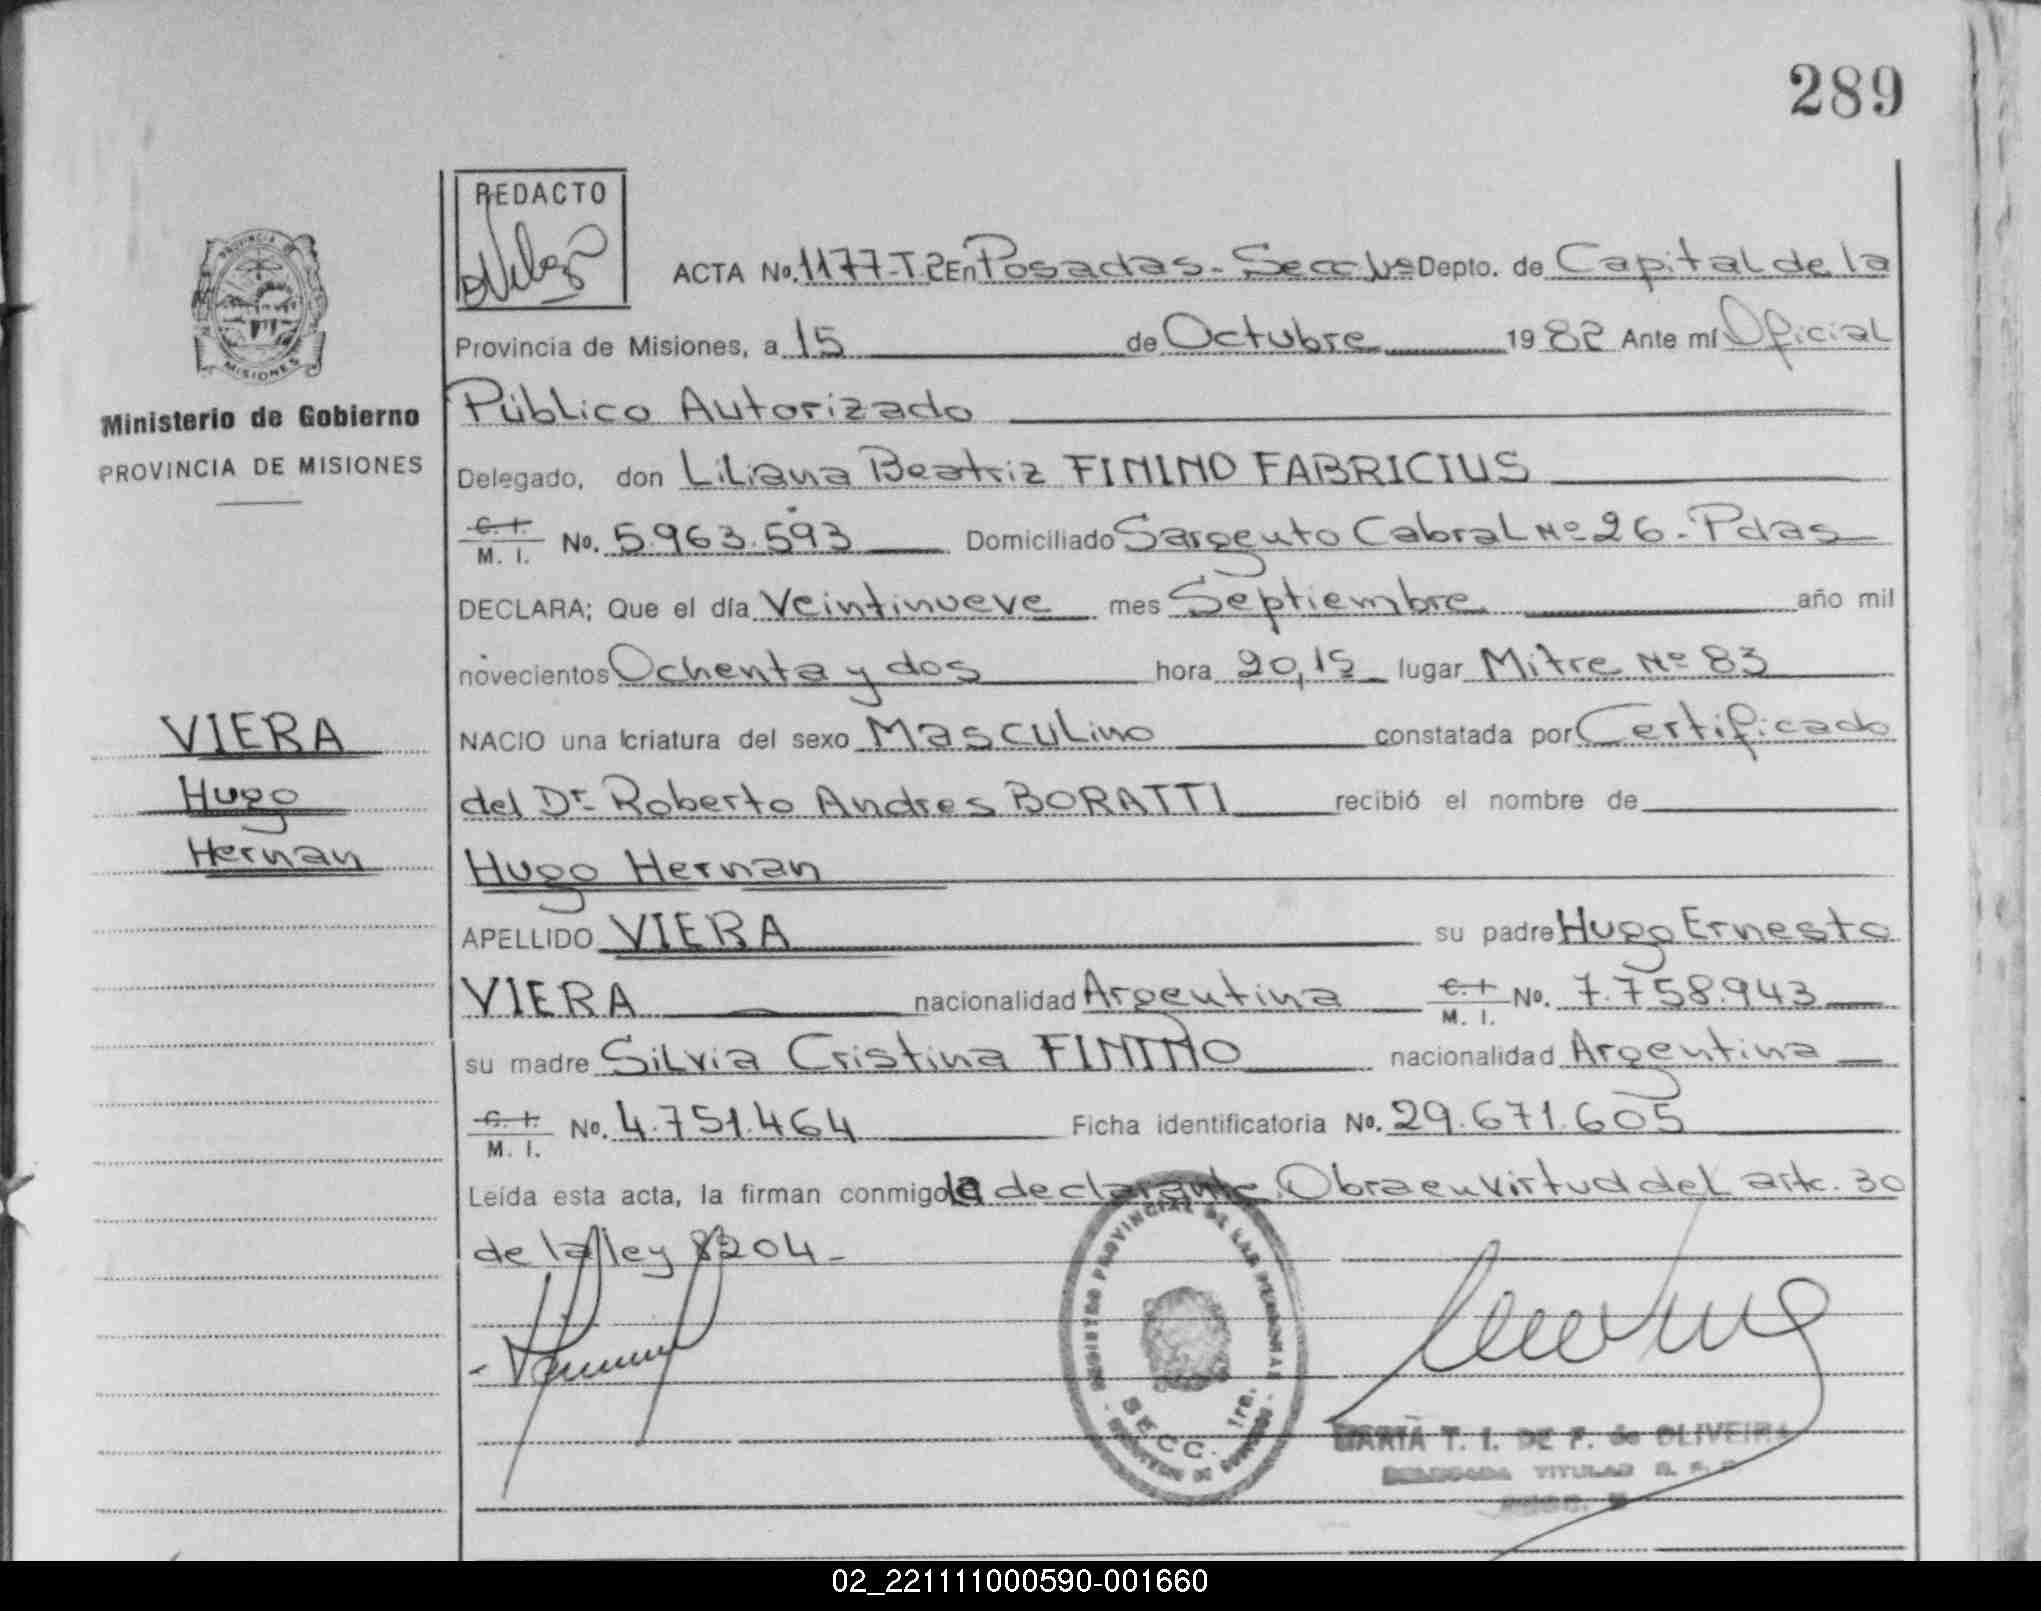 289
REDACTO
ACTA No. 1177-T.2 En Posadas - Secc 1ra Depto. de Capital de la
Provincia de Misiones, a 15 de Octubre 1982 Ante mí Oficial
Público Autorizado
Delegado, don Liliana Beatriz FININO FABRICIUS
C. I. M. I. No. 5.963.593 Domiciliado Sargento Cabral Nº 26 - Pdas
DECLARA; Que el día Veintinueve mes Septiembre año mil
novecientos Ochenta y dos hora 20,15 lugar Mitre Nº 83
NACIO una criatura del sexo Masculino constatada por Certificado
del Dr Roberto Andres BORATTI recibió el nombre de
Hugo Hernan
APELLIDO VIERA su padre Hugo Ernesto
VIERA nacionalidad Argentina C. I. M. I. No. 7.758.943
su madre Silvia Cristina FININO nacionalidad Argentina
C. I. M. I. No. 4.751.464 Ficha identificatoria No. 29.671.605
Leída esta acta, la firman conmigo la declarante. Obra en virtud del artc. 30
de la ley 8204-
PROVINCIA DE
MISIONES
Ministerio de Gobierno
PROVINCIA DE MISIONES
VIERA
Hugo
Hernan
REGISTRO PROVINCIAL DE LAS PERSONAS
SECC. 1ra.
MARTA T. I. DE F. de OLIVEIRA
DELEGADA TITULAR
02_221111000590-001660